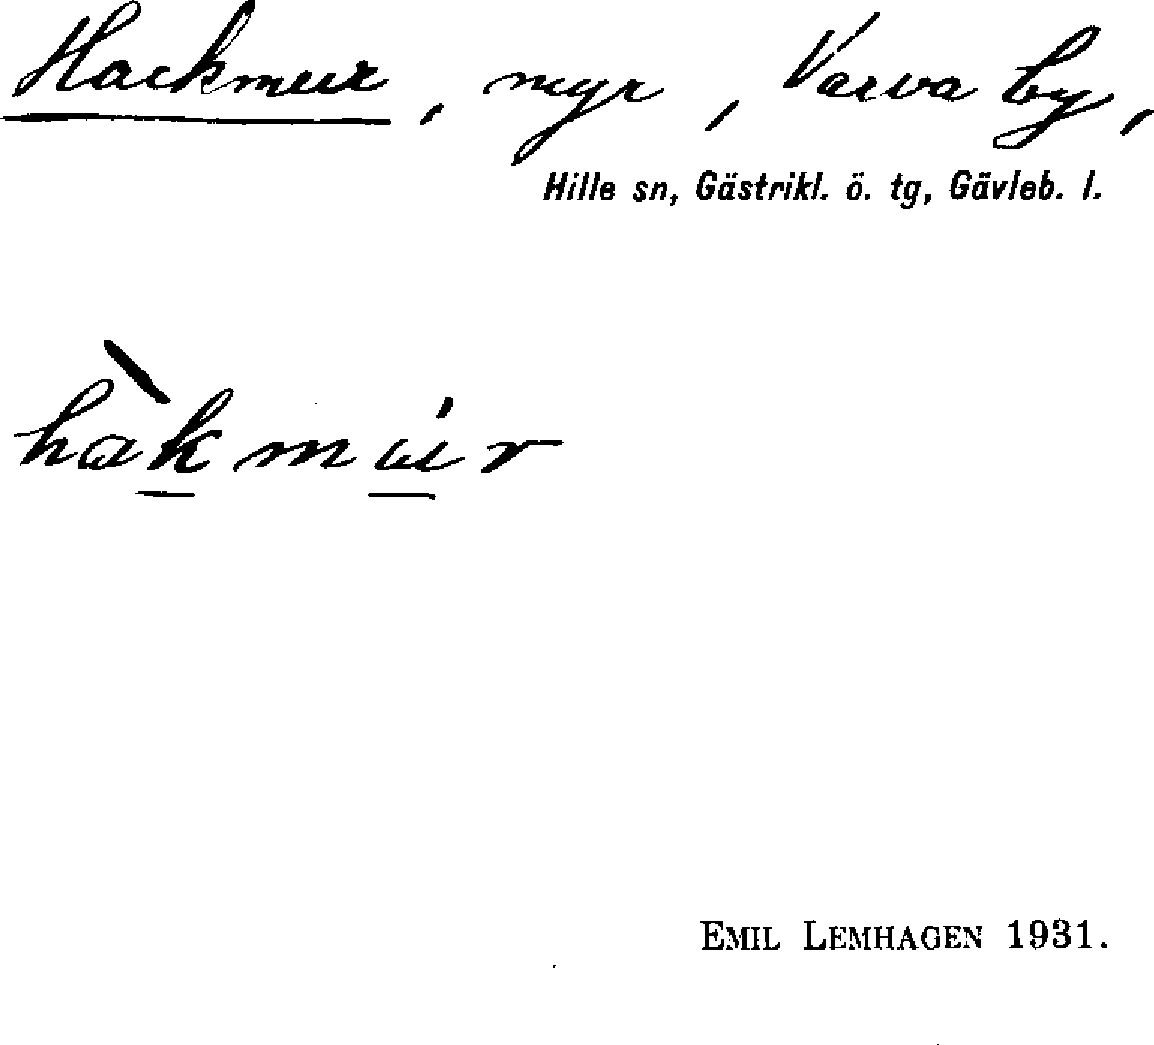 Hackmur, myr, Varva by,
Hille sn, Gästrikl. ö. tg, Gävleb. l.
hàkmúr
EMIL LEMHAGEN 1931.